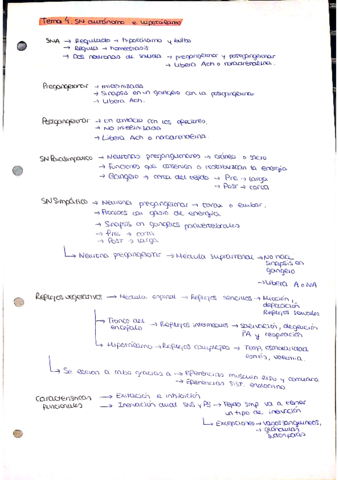 Tema 4. SN autónomo e hipotálamo
SNA → Regulado → hipotálamo y bulbo
→ Regula → homeostasis
→ Dos neuronas de salida → preganglionar y postganglionar
→ Libera Ach o noradrenalina.
Preganglionar → mielinizada
→ Sinapsis en un ganglio con la postganglionar
→ Libera Ach.
Postganglionar → en contacto con los efectores.
→ No mielinizada
→ Libera Ach o noradrenalina
SN Parasimpático → Neuronas preganglionares → cráneo o sacro
→ Funciones que conservan o restablecen la energía
→ Ganglio → cerca del tejido → Pre → larga
→ Post → corta
SN Simpático → Neurona preganglionar → torax o lumbar.
→ Procesos con gasto de energía.
→ Sinapsis en ganglios paravertebrales
→ Pre → corta
→ Post → larga
→ Neurona preganglionar → Medula suprarrenal → No hace
sinapsis en
ganglio
→ Libera A o NA
Reflejos vegetativos → Medula espinal → Reflejos sencillos → Micción,
defecación
Reflejos sexuales
→ Tronco del
encéfalo → Reflejos intermedios → salivación, deglución
PA y respiración
→ Hipotálamo → Reflejos complejos → Temp, osmolaridad
estrés, volemia.
→ Se llevan a cabo gracias a → Eferencias musculo liso y cardiaco
→ Eferencias sist. endocrino.
Características
funcionales → Excitación e inhibición
→ Inervación dual SNS y PS → Tejido simp va a tener
un tipo de inervación
→ Excepciones → Vasos sanguíneos,
→ glándulas
sudoríparas